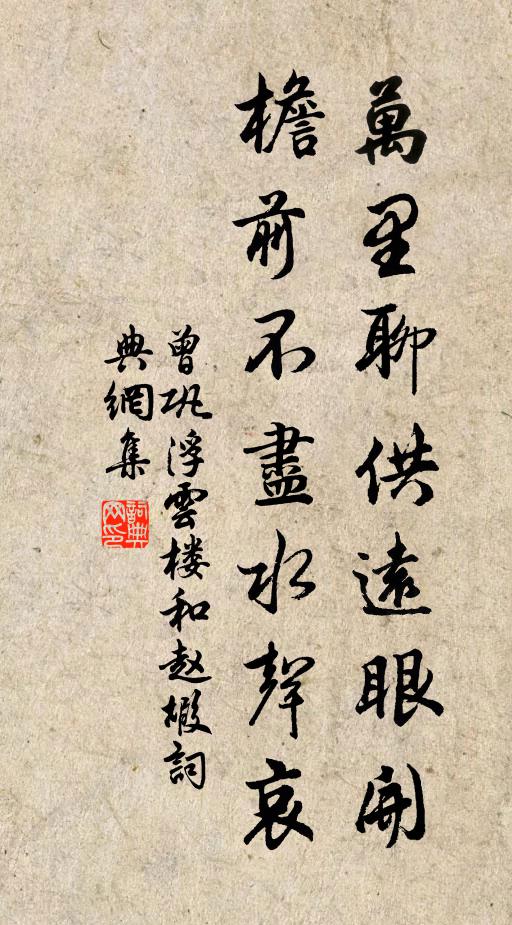 萬里聊供遠眼開
檐前不盡水聲哀
曾巩浮雲楼和赵嘏詞
典網集
詞典網印